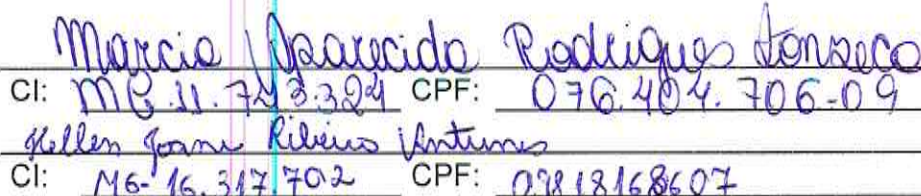 Marcia Aparecida Rodrigues Fonseca
CI: MG.11.743.324 CPF: 076.404.706-09
Hellen Joanne Ribeiro Antunes
CI: MG-16.317.702 CPF: 09818168607